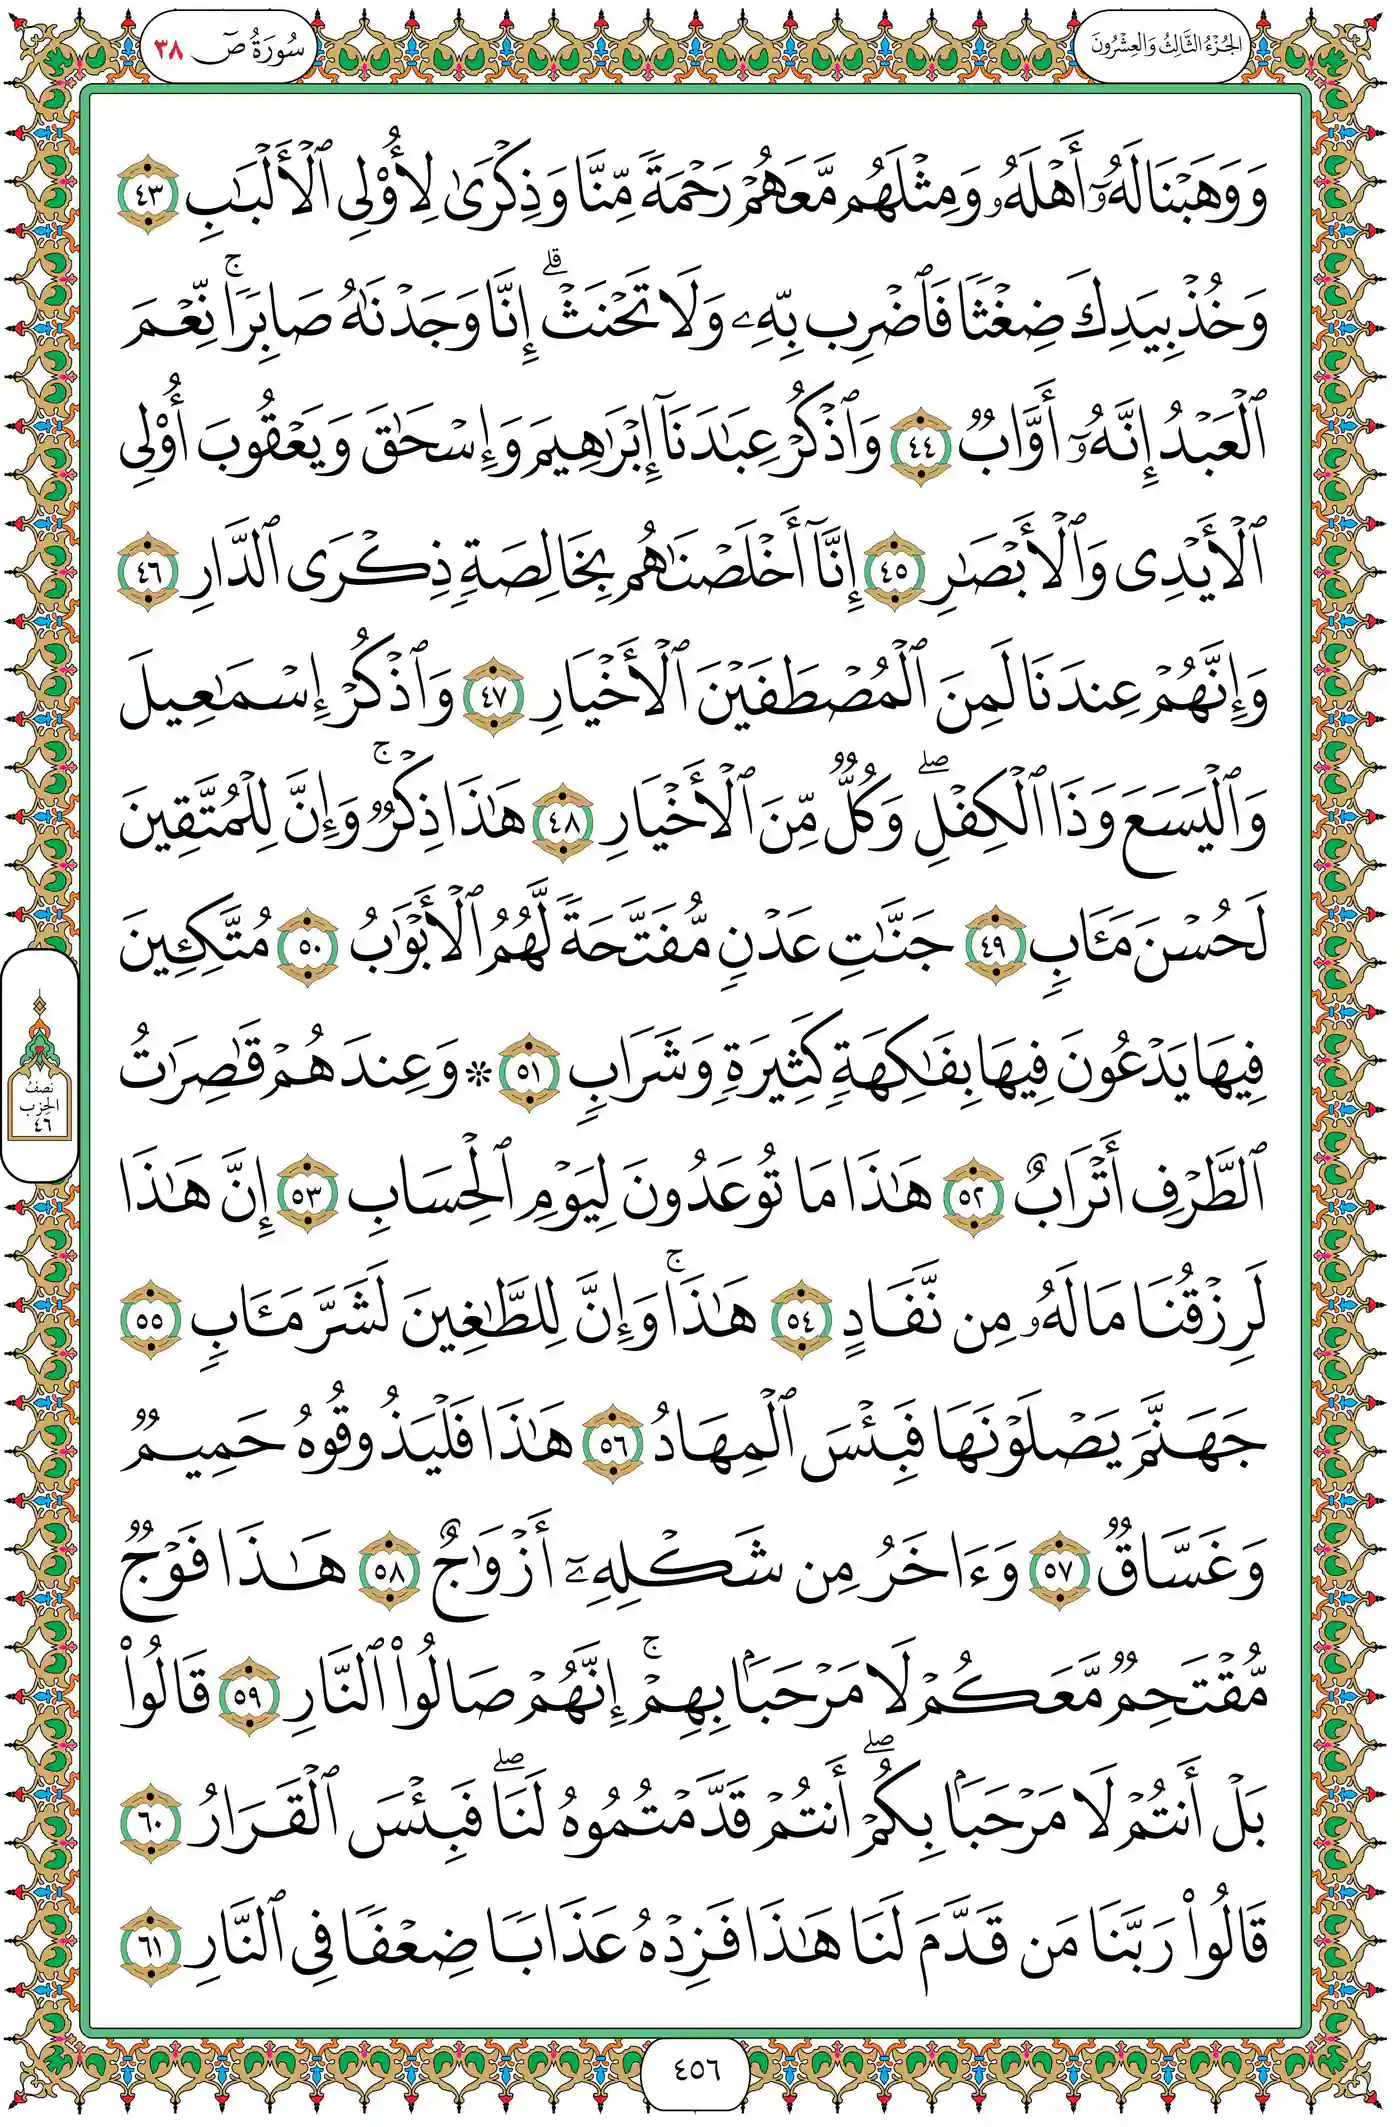 الجُزْءُ الثَّالِثُ وَالعِشْرُونَ
سُورَةُ صٓ ٣٨
وَوَهَبْنَا لَهُۥٓ أَهْلَهُۥ وَمِثْلَهُم مَّعَهُمْ رَحْمَةً مِّنَّا وَذِكْرَىٰ لِأُو۟لِى ٱلْأَلْبَٰبِ ٤٣
وَخُذْ بِيَدِكَ ضِغْثًا فَٱضْرِب بِّهِۦ وَلَا تَحْنَثْ ۗ إِنَّا وَجَدْنَٰهُ صَابِرًا ۚ نِّعْمَ
ٱلْعَبْدُ إِنَّهُۥٓ أَوَّابٌ ٤٤ وَٱذْكُرْ عِبَٰدَنَآ إِبْرَٰهِيمَ وَإِسْحَٰقَ وَيَعْقُوبَ أُو۟لِى
ٱلْأَيْدِى وَٱلْأَبْصَٰرِ ٤٥ إِنَّآ أَخْلَصْنَٰهُم بِخَالِصَةٍ ذِكْرَى ٱلدَّارِ ٤٦
وَإِنَّهُمْ عِندَنَا لَمِنَ ٱلْمُصْطَفَيْنَ ٱلْأَخْيَارِ ٤٧ وَٱذْكُرْ إِسْمَٰعِيلَ
وَٱلْيَسَعَ وَذَا ٱلْكِفْلِ ۖ وَكُلٌّ مِّنَ ٱلْأَخْيَارِ ٤٨ هَٰذَا ذِكْرٌ ۚ وَإِنَّ لِلْمُتَّقِينَ
لَحُسْنَ مَـَٔابٍ ٤٩ جَنَّٰتِ عَدْنٍ مُّفَتَّحَةً لَّهُمُ ٱلْأَبْوَٰبُ ٥٠ مُتَّكِـِٔينَ
فِيهَا يَدْعُونَ فِيهَا بِفَٰكِهَةٍ كَثِيرَةٍ وَشَرَابٍ ٥١ * وَعِندَهُمْ قَٰصِرَٰتُ
ٱلطَّرْفِ أَتْرَابٌ ٥٢ هَٰذَا مَا تُوعَدُونَ لِيَوْمِ ٱلْحِسَابِ ٥٣ إِنَّ هَٰذَا
لَرِزْقُنَا مَا لَهُۥ مِن نَّفَادٍ ٥٤ هَٰذَا ۚ وَإِنَّ لِلطَّٰغِينَ لَشَرَّ مَـَٔابٍ ٥٥
جَهَنَّمَ يَصْلَوْنَهَا فَبِئْسَ ٱلْمِهَادُ ٥٦ هَٰذَا فَلْيَذُوقُوهُ حَمِيمٌ
وَغَسَّاقٌ ٥٧ وَءَاخَرُ مِن شَكْلِهِۦٓ أَزْوَٰجٌ ٥٨ هَٰذَا فَوْجٌ
مُّقْتَحِمٌ مَّعَكُمْ لَا مَرْحَبًۢا بِهِمْ ۚ إِنَّهُمْ صَالُوا۟ ٱلنَّارِ ٥٩ قَالُوا۟
بَلْ أَنتُمْ لَا مَرْحَبًۢا بِكُمْ ۖ أَنتُمْ قَدَّمْتُمُوهُ لَنَا ۖ فَبِئْسَ ٱلْقَرَارُ ٦٠
قَالُوا۟ رَبَّنَا مَن قَدَّمَ لَنَا هَٰذَا فَزِدْهُ عَذَابًا ضِعْفًا فِى ٱلنَّارِ ٦١
نصف
الحزب
٤٦
٤٥٦